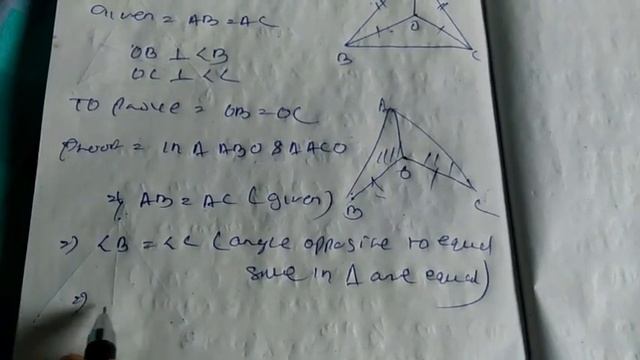 Given = AB = AC
OB ⊥ <B
OC ⊥ <C
O
B
C
To Prove = OB = OC
Proof = In Δ ABO & Δ ACO
A
O
B
C
=> AB = AC (given)
=> <B = <C (angle opposite to equal
side in Δ are equal)
=>